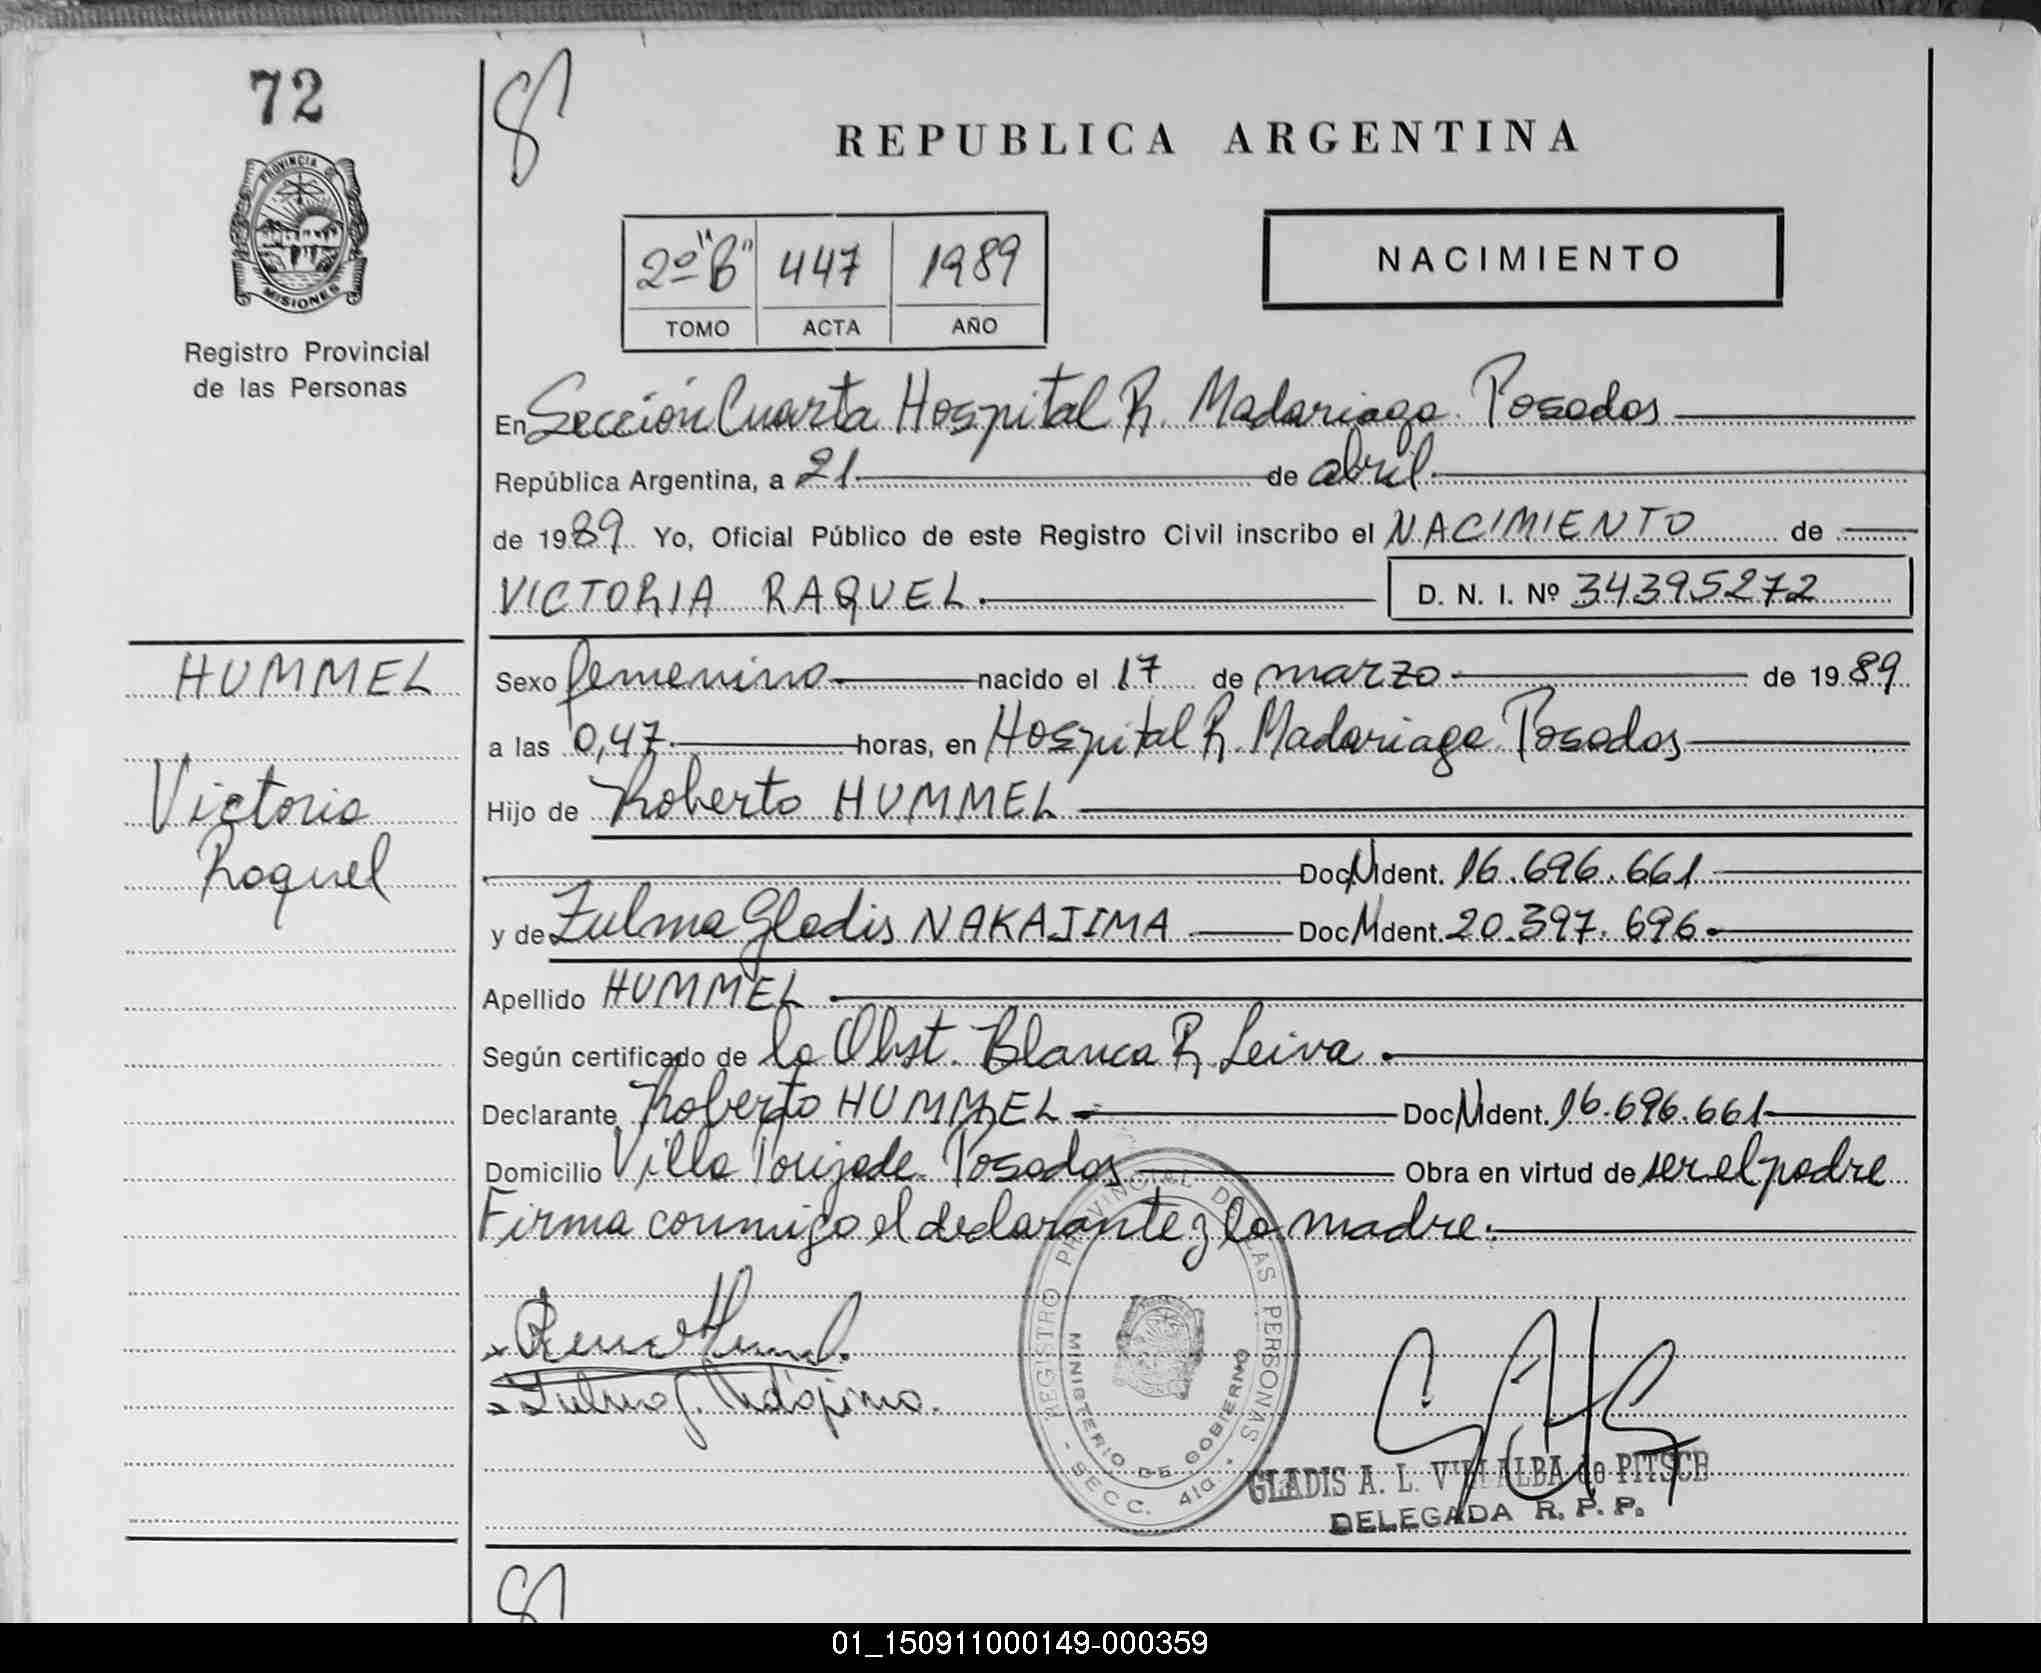 72
PROVINCIA DE
MISIONES
Registro Provincial
de las Personas
REPUBLICA ARGENTINA
2º "B" 447 1989
TOMO ACTA AÑO
NACIMIENTO
En Sección Cuarta Hospital R. Madariaga Posadas
República Argentina, a 21 de abril
de 1989 Yo, Oficial Público de este Registro Civil inscribo el NACIMIENTO de
VICTORIA RAQUEL D. N. I. Nº 34395272
HUMMEL
Victoria
Raquel
Sexo femenino nacido el 17 de marzo de 1989
a las 0,47 horas, en Hospital R. Madariaga Posadas
Hijo de Roberto HUMMEL
Doc. N Ident. 16.696.661
y de Zulma Gladis NAKAJIMA Doc. N Ident. 20.397.696
Apellido HUMMEL
Según certificado de la Obst. Blanca R. Leiva
Declarante Roberto HUMMEL Doc. N Ident. 16.696.661
Domicilio Villa Posadas Obra en virtud de ser el padre
Firma conmigo el declarante y la madre.
REGISTRO PROVINCIAL DE LAS PERSONAS
MINISTERIO DE GOBIERNO
SECC. 4ta.
GLADIS A. L. VILLALBA de PITSCH
DELEGADA R. P. P.
01_150911000149-000359